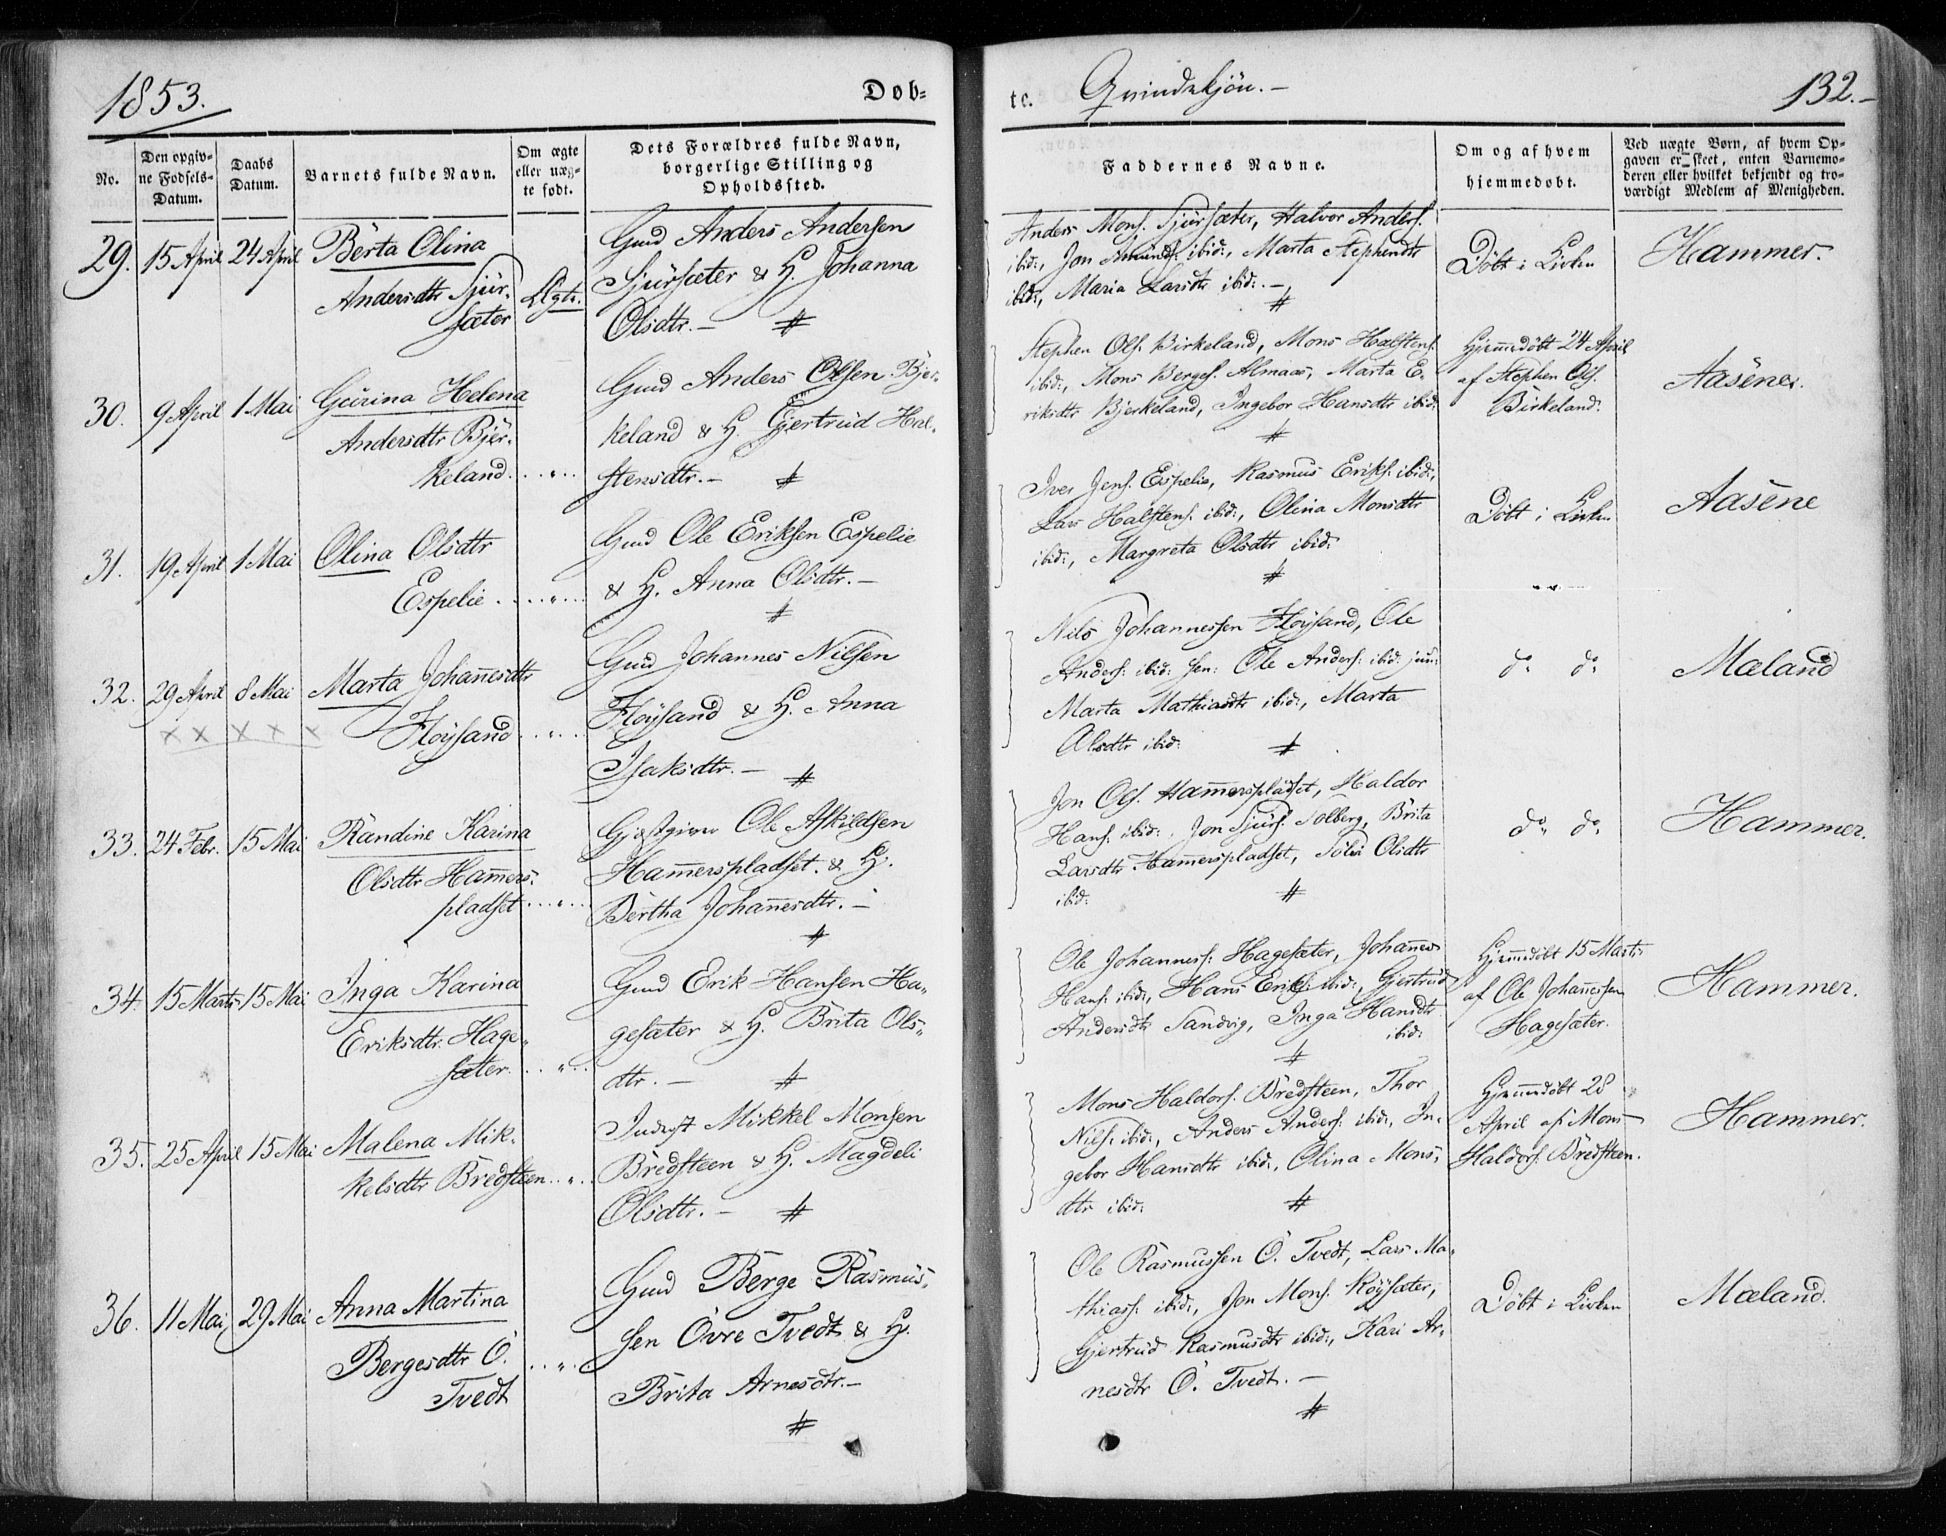 1853.
Døb=
te. Qvindekjøn.-
132.-
No.
Den opgiv-
ne Fødsels-
Datum.
Daabs
Datum.
Barnets fulde Navn.
Om ægte
eller uæg-
te født.
Dets Forældres fulde Navn,
borgerlige Stilling og
Opholdssted.
Faddernes Navne.
Om og af hvem
hjemmedøbt.
Ved uægte Børn, af hvem Op-
gaven er skeet, enten Barnemo-
deren eller hvilket bekjendt og tro-
værdigt Medlem af Menigheden.
29. 15 April 24 April Berta Olina
Andersdtr Sjur-
sæter
Ægte.
Gmd Anders Andersen
Sjursæter & H. Johanna
Olsdtr.- #
Anders Mons. Sjursæter, Halvor Anders.
ibid:, Jon Amunds. ibid:, Marta Stephensdtr
ibid:, Maria Larsdtr ibid:.-
#
Döbt i Kirken
Hammer.
30. 9 April 1 Mai Gurina Helena
Andersdtr Bjer-
keland. . . " . .
Gmd Anders Olsen Bjer-
keland & H. Gjertrud Hal-
stensdtr.- #
Stephen Ols. Birkeland, Mons Halstens.
ibid:, Mons Berges. Almaas, Marta E-
riksdtr Bjerkeland, Ingebor Hansdtr ibid:
#
Hjemmedöbt 24 April
af Stephen Ols.
Birkeland.
Aasene.
31. 19 April 1 Mai Olina Olsdtr
Espelie . . . " . .
Gmd Ole Eriksen Espelie
& H. Anna Olsdtr.-
#
Iver Jens. Espelie, Rasmus Eriks. ibid:,
Lars Halstens. ibid:, Olina Monsdtr
ibid:, Margreta Olsdtr ibid:
#
Döbt i Kirken
Aasene
32. 29 April 8 Mai Marta Johannesdtr
Flöysand . . " . .
× × × × ×
Gmd Johannes Nilsen
Flöysand & H. Anna
Isaksdtr.- #
Nils Johannessen Flöysand, Ole
Anders. ibid: sen: Ole Anders. ibid: jun:
Marta Mathiasdtr ibid:, Marta
Olsdtr ibid: #
do do
Mæland
33. 24 Febr. 15 Mai Randine Karina
Olsdtr Hammers-
pladset . . . " . .
Gjæstgiver Ole Askildsen
Hammerspladset. & H.
Bertha Johannesdtr.-
#
Jon Ols. Hammerspladset, Haldor
Hans. ibid:. Jon Sjurs. Solberg, Brita
Larsdtr Hammerspladset, Olsdtr
ibid: #
do do
Hammer.
34. 15 Marts 15 Mai Inga Karina
Eriksdtr. Hage-
sæter. . . " . .
Gmd Erik Hansen Ha-
gesæter & H. Brita Ols-
dtr.- #
Ole Johanness. Hagesæter, Johannes
Hans. ibid:, Hans Eriks. ibid:, Gjertrud
Andersdtr Sandvig, Inga Hansdtr
ibid:
#
Hjemmedöbt 15 Marts
af Ole Johannessen
Hagesæter.
Hammer.
35. 25 April 15 Mai Malena Mik-
kelsdtr Bredsteen . . " . .
Inderst Mikkel Monsen
Bredsteen & H. Magdeli
Olsdtr.- #
Mons Haldors. Bredsteen, Thor
Nils. ibid:, Anders Anders. ibid:, In-
gebor Hansdtr ibid:, Olina Mons-
dtr ibid: #
Hjemmedöbt 28
April af Mons
Haldors. Bredsteen.
Hammer.
36. 11 Mai 29 Mai Anna Martina
Bergesdtr Ö.
Tvedt
. . " . .
Gmd Berge Rasmus-
sen Övre Tvedt & H.
Brita Arnesdtr.-
#
Ole Rasmussen Ö. Tvedt, Lars Ma-
thiass. ibid:, Jon Mons. Röysæter,
Gjertrud Rasmusdtr ibid:, Kari Ar-
nesdtr Ö. Tvedt.-
#
Döbt i Kirken
Mæland.